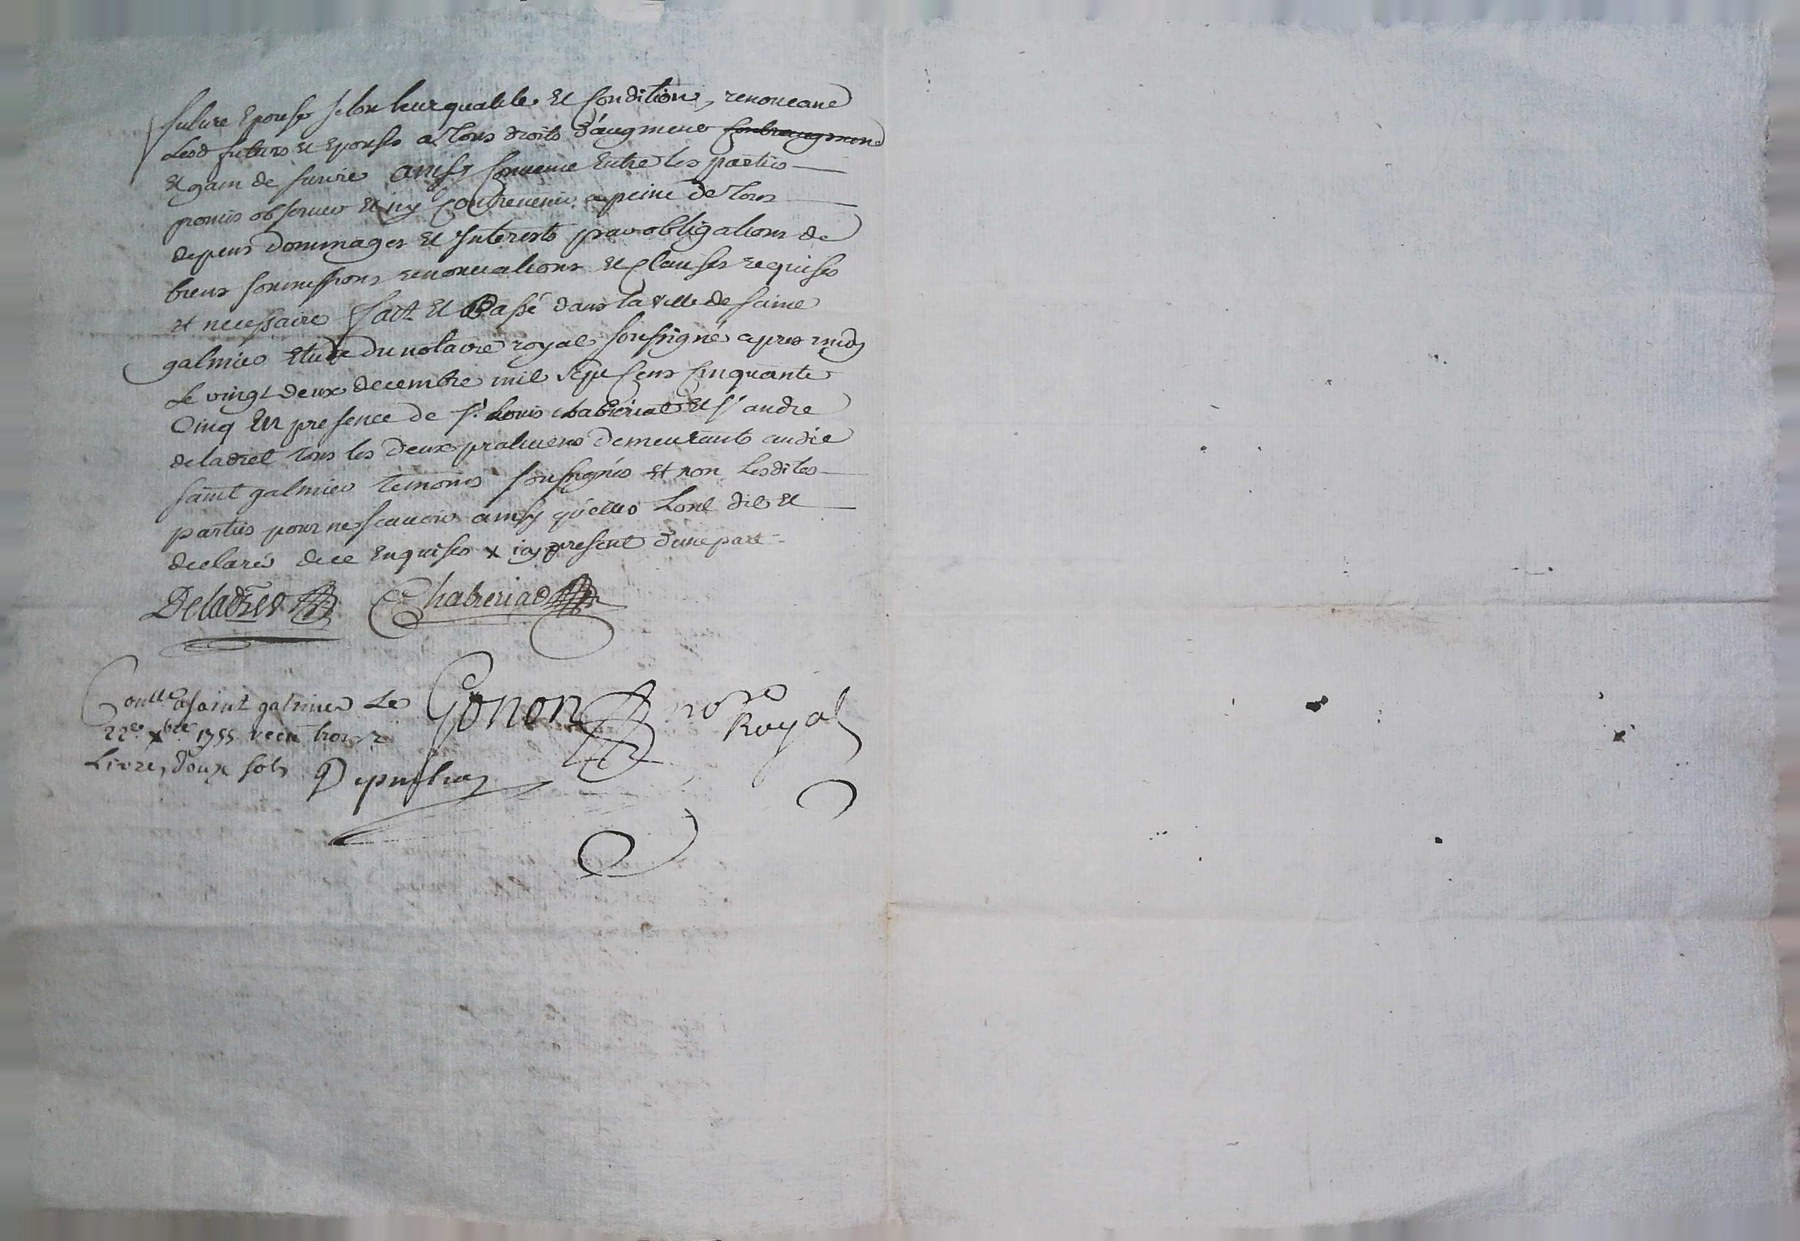 future Epouse selon leur qualite et Condition, renonceant
lesd futurs et Epouse a tous droits d'augment contreaugment
et gain de survie ainsy Convenu Entre les parties
promis observer et ny Contrevenir a peine de tous
depens dommages et Interests par obligations de
biens soumissions renonciations et Clauses requises
et necessaire fait et Passé dans la ville de saint
galmier Etude du notaire royal soussigné apres midy
Le vingt deux decembre mil sept Cens Cinquante
Cinq En presence de sr. Louis Chaberiat et sr andré
deladret tous les deux praticiens demeurants audit
saint galmier temoins soussignés et non lesdites
parties pour ne scavoir ainsy qu'elles L'ont dit et
declaré de ce Enquises x present d'une part
Deladret Chaberiad
Conllé a saint galmier Le Gonon nore Royal
22e xbre 1755 receu trois
Livres, deux sols